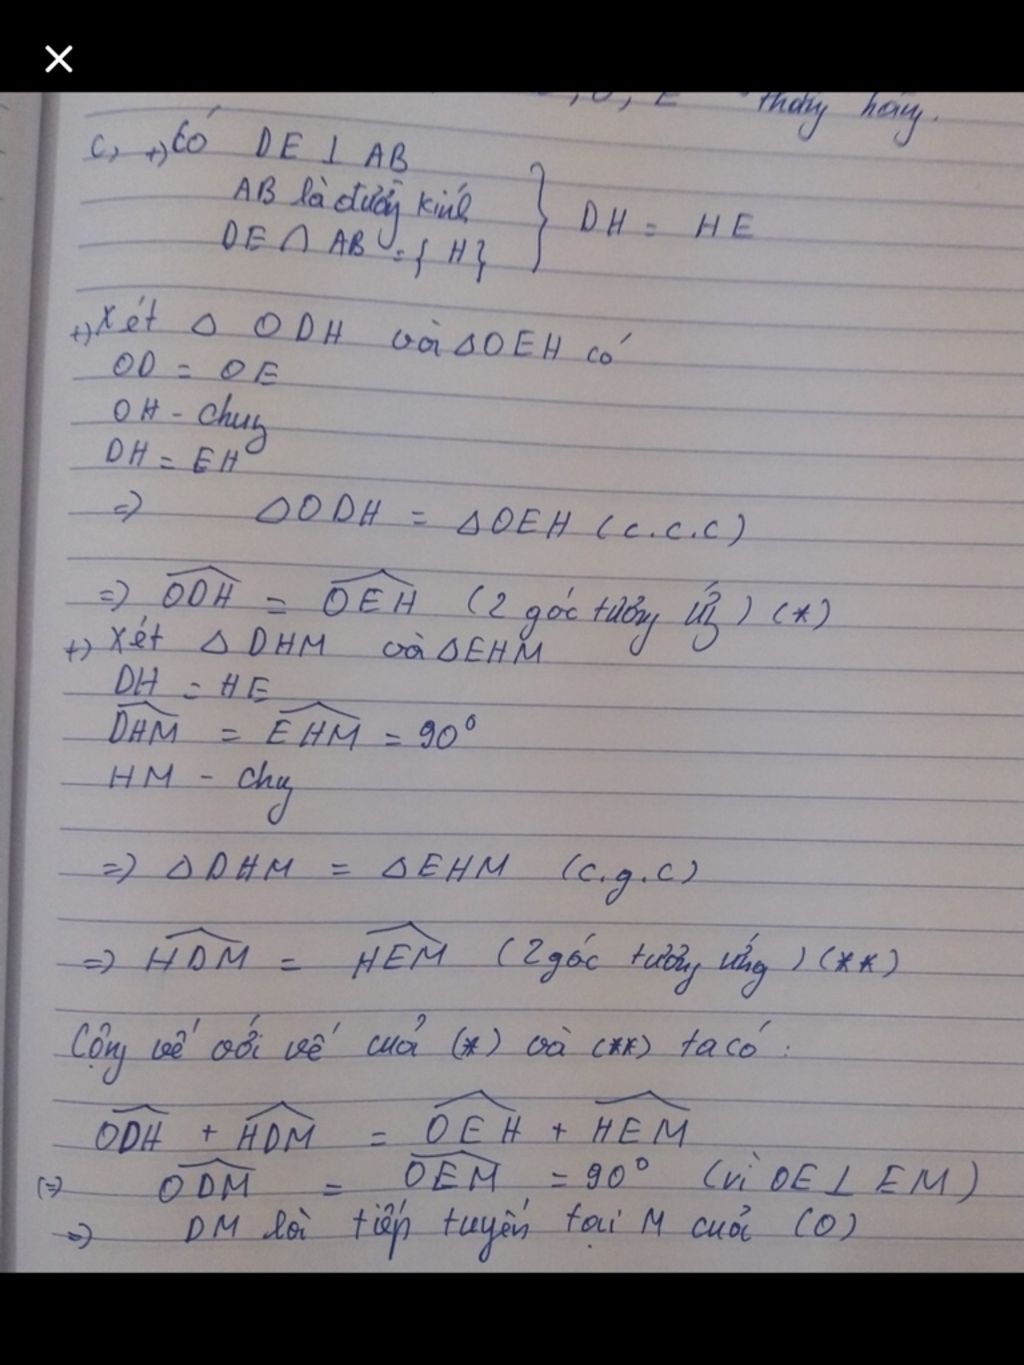 , E thẳng hàng.
c, +) Có DE ⊥ AB
AB là đường kính
DE ∩ AB = { H } } DH = HE
+) Xét △ ODH và △OEH có
OD = OE
OH - chung
DH = EH
=> △ODH = △OEH (c.c.c)
=> ODH = OEH (2 góc tương ứng) (*)
+) Xét △ DHM và △EHM
DH = HE
DHM = EHM = 90°
HM - chung
=> △DHM = △EHM (c.g.c)
=> HDM = HEM (2 góc tương ứng) (**)
Cộng vế với vế của (*) và (**) ta có :
ODH + HDM = OEH + HEM
(=> ODM = OEM = 90° (vì OE ⊥ EM)
=> DM là tiếp tuyến tại M của (O)